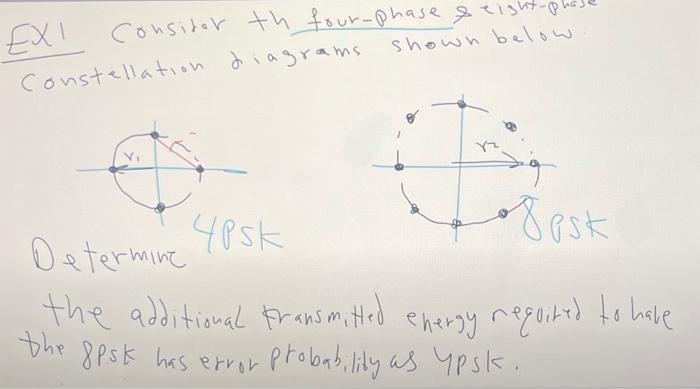 EX1 Consider th four-phase & eight-phase
Constellation diagrams shown below
r1
r2
4PSK
8PSK
Determine
the additional transmitted energy required to have
the 8PSK has error probability as 4PSK.